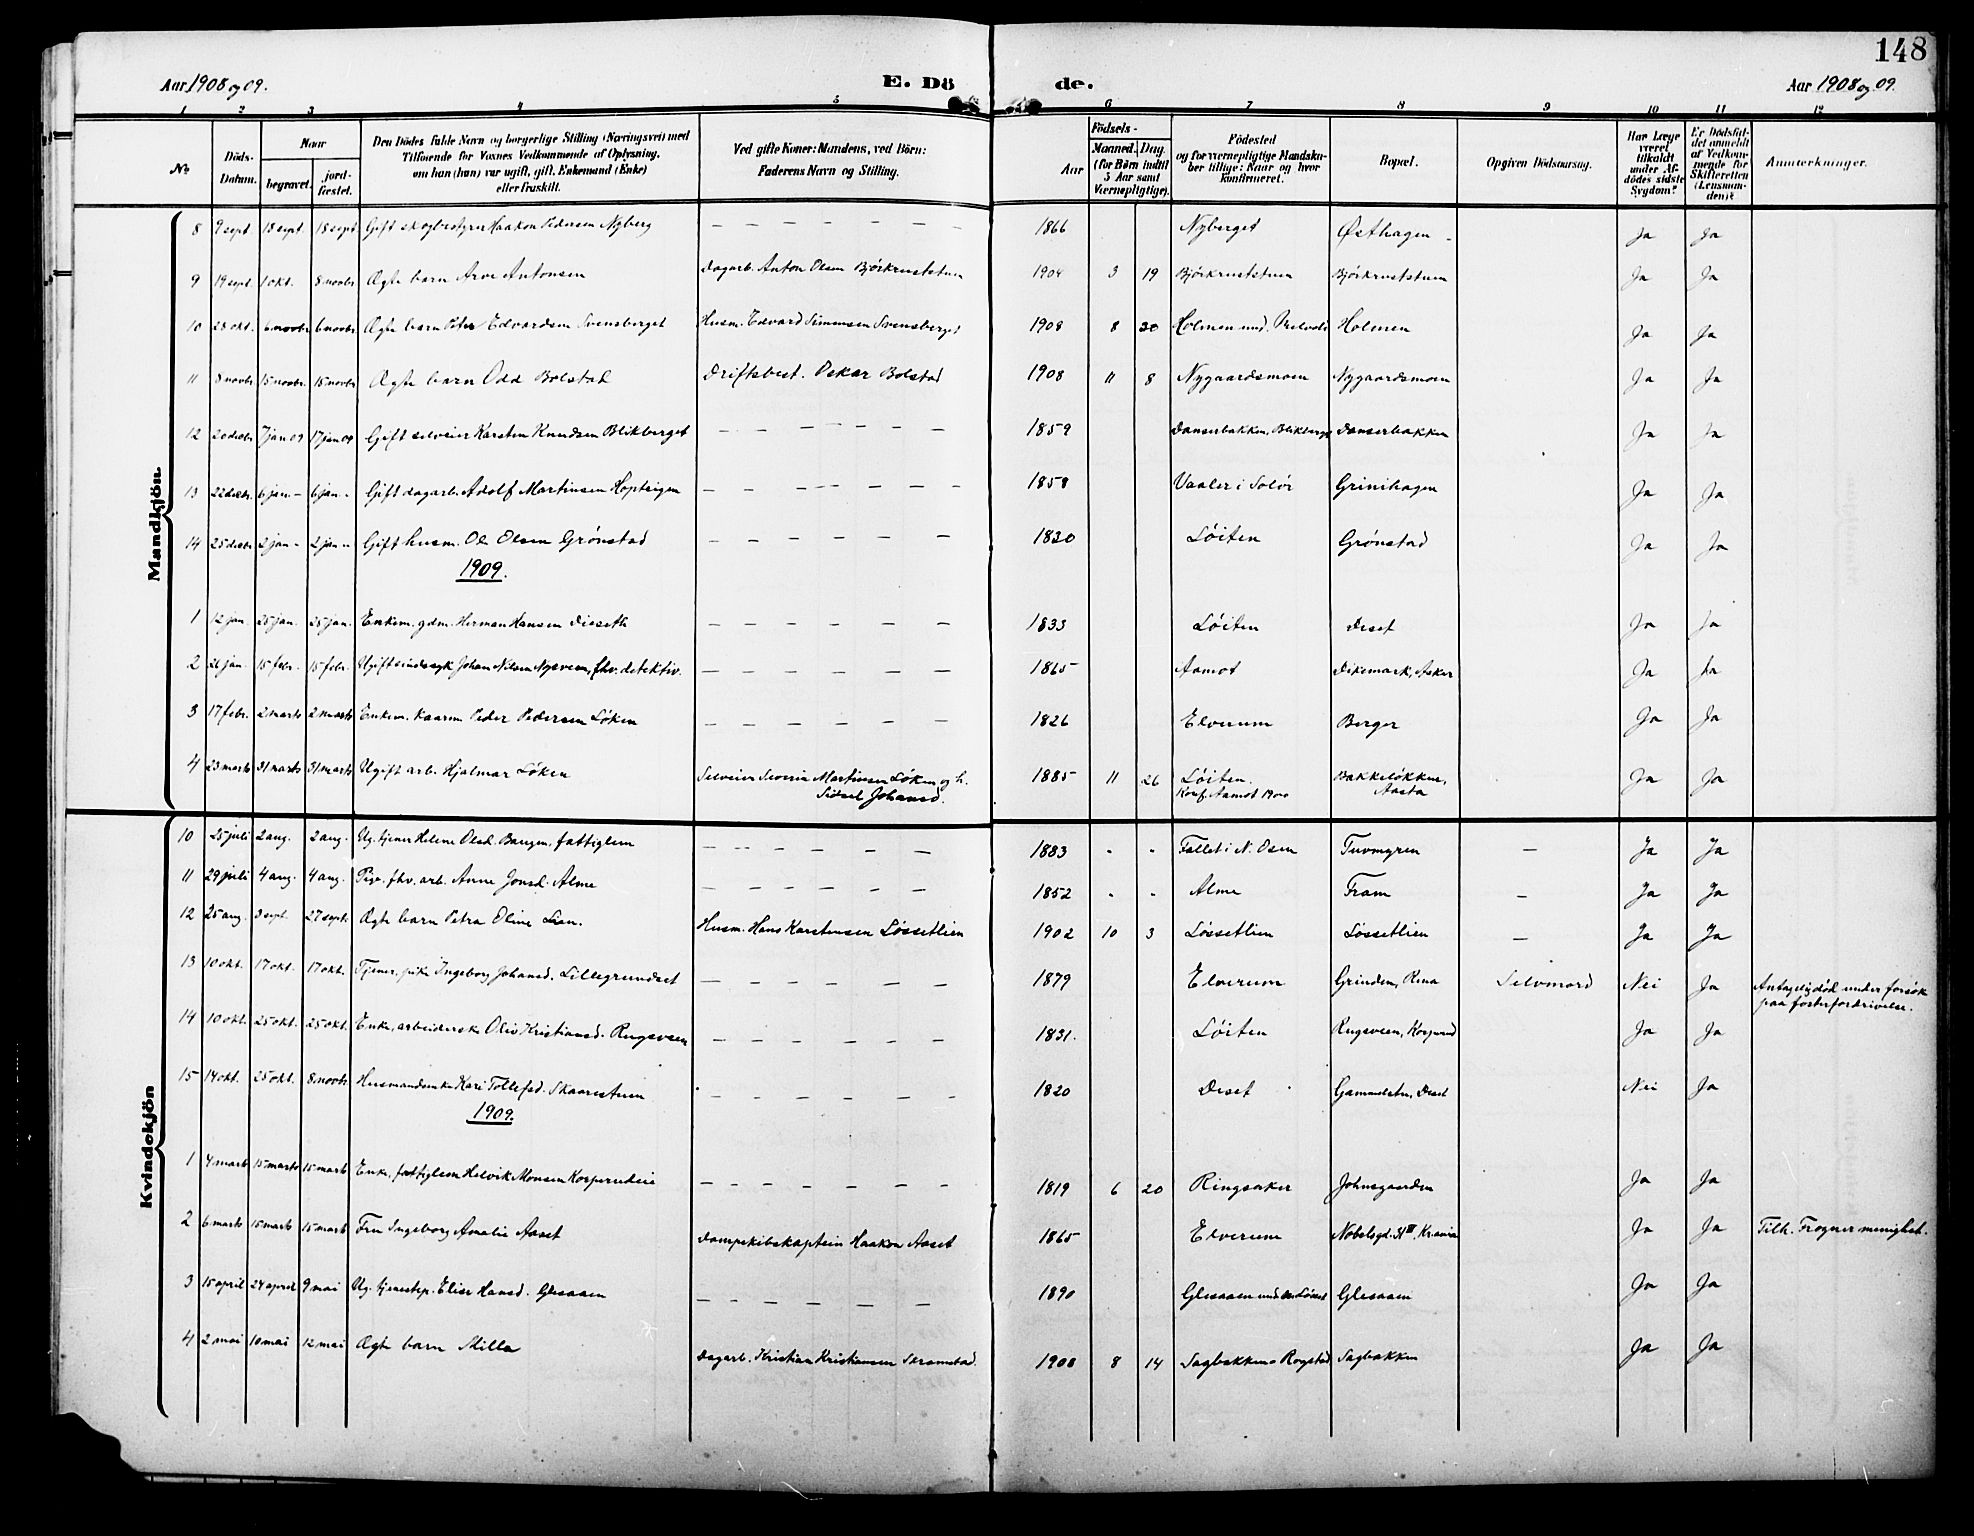 148
Aar 1908 og 09.
E. Dö
de.
Aar 1908 og 09.
1 2 3 4 5 6 7 8 9 10 11 12
No.
Döds-Datum.
Naar
begravet.
jord-fæstet.
Den Dödes fulde Navn og borgerlige Stilling (Næringsvei) med
Tilföiende for Voxnes Vedkommende af Oplysning,
om han (hun) var ugift, gift, Enkemand (Enke)
eller fraskilt.
Ved gifte Koner: Mandens, ved Börn:
Faderens Navn og Stilling.
Födsels-
Aar
Maaned. Dag
(for Börn indtil 5 Aar samt Værnepligtige).
Födested
og for værnepligtige Mandska-
ber tillige: Naar og hvor
konfirmeret.
Bopæl.
Opgiven Dödsaarsag.
Har Læge været tilkaldt under Afdödes sidste Sygdom?
Er Dödsfaldet anmeldt af Vedkommende for Skifteretten (Lensmanden)?
Anmærkninger.
Mandkjön
8 9 sept 18 sept. 18 sept Gift skogbestyrer Haakon Pedersen Nyberg — — — — — — 1866 Nyberget Østhagen Ja Ja
9 19 sept. 1 okt. 8 novbr Ægte barn Arve Antonsen Dagarb. Anton Olsen Björkrustetuen 1904 3 19 Björkrustetuen Björkrustetuen Ja Ja
10 28 okt. 6 novbr 6 novbr Ægte barn Peter Edvardsen Svensberget Husm. Edvard Simensen Svensberget 1908 8 20 Holmen und. Holmen Ja Ja
11 8 novbr 15 novbr. 15 novbr Ægte barn Odd Bolstad Driftsbest. Oskar Bolstad 1908 11 8 Nygaardsmoen Nygaardsmoen Ja Ja
12 20 decbr 7 jan 09 17 jan 09 Gift selveier Karsten Knudsen Blikberget — — — — — — 1859 Danserbakken, Blikberget Danserbakken Ja Ja
13 22 decbr. 6 jan. – 6 jan. – Gift dagarb. Adolf Martinsen — — — — — — 1858 Vaaler i Solör Grinihagen Ja Ja
14 25 decbr 2 jan – 2 jan – Gift husm. Ole Olsen Grönstad — — — — — — 1820 Löiten Grönstad Ja Ja
1909.
1 12 jan. 25 jan. 25 jan. Enkem. gdm. Herman Hansen Disseth — — — — — — 1833 Löiten Deset Ja Ja
2 26 jan. 15 febr. 15 febr. Ugift sindssyk Johan Nilsen Nysveen, fhv. detektiv. — — — — — — 1865 Aamot Dikemark, Asker Ja Ja
3 17 febr. 2 marts 2 marts Enkem. Kaarm Peder Pedersen Löken — — — — — — 1826 Elverum Berger Ja Ja
4 23 marts 31 marts 31 marts Ugift arb. Hjalmar Löken Selveier Severin Martinsen Löken og h. 1885 11 26 Löiten. Bakkelökken, Ja Ja
Sidsel Johansd. Konf. Aamot 1900 Aasta
Kvindekjön
10 25 juli 2 aug. 2 aug. Ug. tjener Helene Olsd. Bangen, fattiglem — — — — — — 1883 " " Fallet i N. Osen Tuvmyren — Ja Ja
11 29 juli 4 aug. 4 aug. Pige, fhv. arb. Anne Jonsd. Alme — — — — — — 1852 " " Alme Fram — Ja Ja
12 25 aug. 3 sept. 27 sept. Ægte barn Petra Oline Lien. Husm. Hans Karstensen Lössetlien 1902 10 3 Lössetlien Lössetlien — Ja Ja
13 10 okt. 17 okt. 17 okt. Tjener, pike Ingeborg Johansd. Lillegrundset — — — — — — 1879 Elverum Grinden, Rena Selvmord Nei Ja Antagelig död under forsök
paa fosterfordrivelse.
14 10 okt. 25 okt. 25 okt. Enke, arbeiderske Oliv Kristiansd. Rugsveen — — — — — — 1831. Löiten Rugsveen, Ja Ja
15 14 okt. 25 okt. 8 novbr Husmandsenke Kari Tollefsd. Skaarestuen — — — — — — 1820 Deset Gammelstu, Deset Nei Ja
1909.
1 4 marts 15 marts 15 marts Enke, fattiglem Helvik Monsen Korperudeie — — — — — — 1819 6 20 Ringsaker Johnsgaarden Ja Ja
2 6 marts 15 marts 15 marts Fru Ingeborg Amalie Aaset Dampskibskaptein Haakon Aaset 1865 Elverum Nobelsgt. 31 III, Kr.ania Ja Ja Tilh. Frogner menighet.
3 15 april 24 april 9 mai Ug. tjenestep. Elise Hansd. Glesaaen — — — — — — 1890 Glesaaen und. Lösset Glesaaen Ja Ja
4 2 mai 10 mai 12 mai Ægte barn Milla Dagarb. Kristian Kristiansen Skramstad. 1908 8 14 Sagbakken, Rogstad Sagbakken Ja Ja